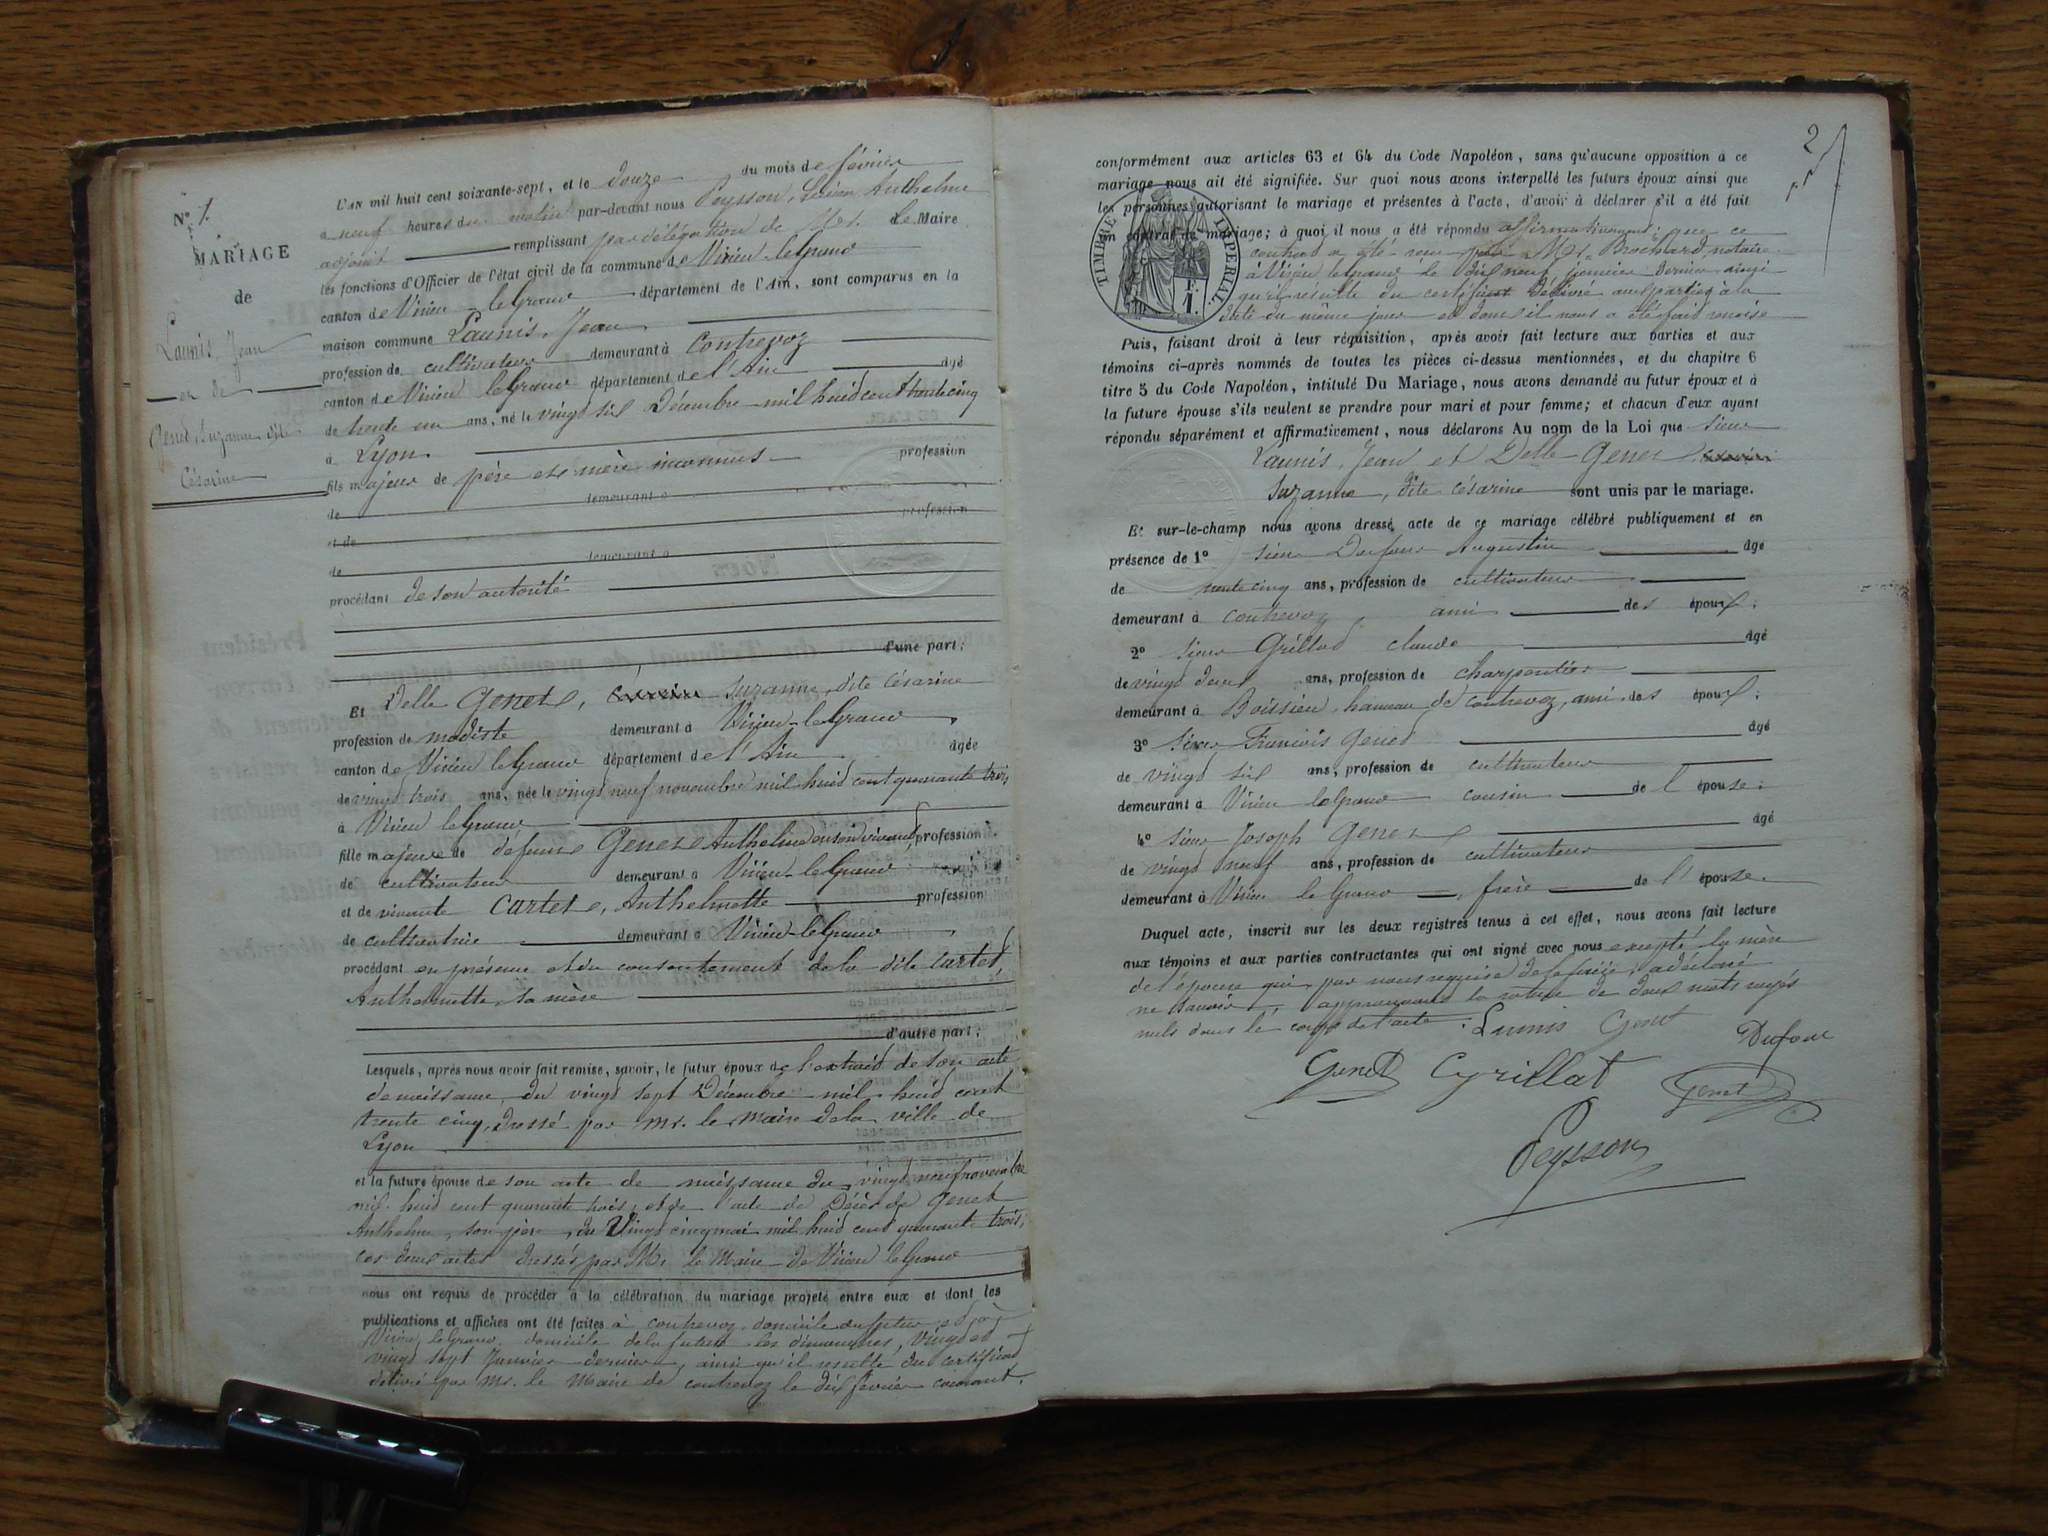 N° 1.
MARIAGE
de
Launis, Jean
et de
Genet, Suzanne dite
Césarine
L'AN mil huit cent soixante-sept, et le douze du mois de février
a neuf heures du matin par-devant nous Peysson, Anthelme
adjoint remplissant par délégation de Mr. le Maire
les fonctions d'Officier de l'état civil de la commune de Virieu-le-Grand
canton de Virieu-le-Grand département de l'Ain, sont comparus en la
maison commune Launis, Jean
profession de cultivateur demeurant à Contrevoz
canton de Virieu le Grand département de l'Ain âgé
de trente un ans, né le vingt six Décembre mil huit cent trente cinq
à Lyon.
fils majeur de père et mère inconnus profession
de demeurant à
et de profession
de demeurant à
procédant de son autorité
d'une part;
Et Delle Genet, Suzanne, dite Césarine
profession de modiste demeurant à Virieu-le-Grand
canton de Virieu le Grand département de l'Ain âgée
de vingt trois ans, née le vingt neuf novembre mil huit cent quarante trois,
à Virieu le Grand
fille majeure de défunt Genet Anthelme en son vivant, profession
de cultivateur demeurant à Virieu-le-Grand
et de vivante Cartet, Anthelmette profession
de cultivatrice demeurant à Virieu-le-Grand
procédant en présence et du consentement de la dite Cartet,
Anthelmette, sa mère
d'autre part;
Lesquels, après nous avoir fait remise, savoir, le futur époux de l'extrait de son acte
de naissance, du vingt sept Décembre mil huit cent
trente cinq, dressé par Mr. le Maire de la ville de
Lyon
et la future épouse de son acte de naissance du vingt neuf novembre
mil huit cent quarante trois, et de l'acte de Décès de Genet
Anthelme, son père, du vingt cinq mai mil huit cent quarante trois,
ces deux actes dressés par Mr le Maire de Virieu le Grand
nous ont requis de procéder à la célébration du mariage projeté entre eux et dont les
publications et affiches ont été faites à Contrevoz domicile du futur et à
Virieu le Grand, domicile de la future les dimanches, vingt et
vingt sept Janvier dernier, ainsi qu'il résulte du certificat
délivré par Mr. le Maire de Contrevoz le dix février courant.
2
conformément aux articles 63 et 64 du Code Napoléon, sans qu'aucune opposition à ce
mariage nous ait été signifiée. Sur quoi nous avons interpellé les futurs époux ainsi que
les personnes autorisant le mariage et présentes à l'acte, d'avoir à déclarer s'il a été fait
un contrat de mariage; à quoi il nous a été répondu affirmativement; que ce
contrat a été reçu par Mr. Brochard, notaire
à Virieu le Grand le dix neuf janvier dernier ainsi
qu'il résulte du certificat délivré aux parties à la
date du même jour et dont il nous a été fait remise
TIMBRE IMPERIAL
1 F.
Puis, faisant droit à leur réquisition, après avoir fait lecture aux parties et aux
témoins ci-après nommés de toutes les pièces ci-dessus mentionnées, et du chapitre 6
titre 5 du Code Napoléon, intitulé Du Mariage, nous avons demandé au futur époux et à
la future épouse s'ils veulent se prendre pour mari et pour femme; et chacun d'eux ayant
répondu séparément et affirmativement, nous déclarons Au nom de la Loi que Sieur
Launis, Jean et Delle Genet
Suzanne, dite Césarine sont unis par le mariage.
Et sur-le-champ nous avons dressé acte de ce mariage célébré publiquement et en
présence de 1° Sieur Dufour Augustin âgé
de trente cinq ans, profession de cultivateur
demeurant à Contrevoz ami des époux;
2° Sieur Grillat Claude âgé
de vingt deux ans, profession de charpentier
demeurant à Boissieu, hameau de Contrevoz, ami des époux;
3° Sieur François Genet âgé
de vingt six ans, profession de cultivateur
demeurant à Virieu le Grand cousin de l'épouse;
4° Sieur Joseph Genet âgé
de vingt neuf ans, profession de cultivateur
demeurant à Virieu le Grand, frère de l'épouse.
Duquel acte, inscrit sur les deux registres tenus à cet effet, nous avons fait lecture
aux témoins et aux parties contractantes qui ont signé avec nous excepté la mère
de l'épouse qui, par nous requise de le faire, a déclaré
ne savoir, approuvant la rature de deux mots rayés
nuls dans le corps de l'acte. Launis Genet Dufour
Genet Grillat Genet
Peysson